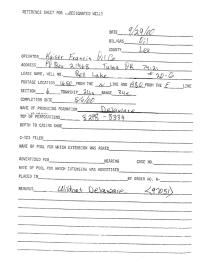 REFERENCE SHEET FOR UNDESIGNATED WELLS
DATE 9/29/00
OIL/GAS Oil
COUNTY Lea
OPERATOR Kaiser Francis Oil Co
ADDRESS PO Box 21468 Tulsa OK 74121
LEASE NAME, WELL NO. Bell Lake #20-G
FOOTAGE LOCATION, FROM THE LINE AND FROM THE E LINE
SECTION 6 TOWNSHIP 24s RANGE 34e
COMPLETION DATE
NAME OF PRODUCING FORMATION Delaware
TOP OF PERFORATIONS 8292 - 8334
DEPTH TO CASING SHOE
C-123 FILED
NAME OF POOL FOR WHICH EXTENSION WAS ASKED
ADVERTISED FOR HEARING CASE NO.
NAME OF POOL FOR WHICH EXTENSION WAS ADVERTISED
PLACED IN BY ORDER NO. R-
REMARKS Wildcat Delaware